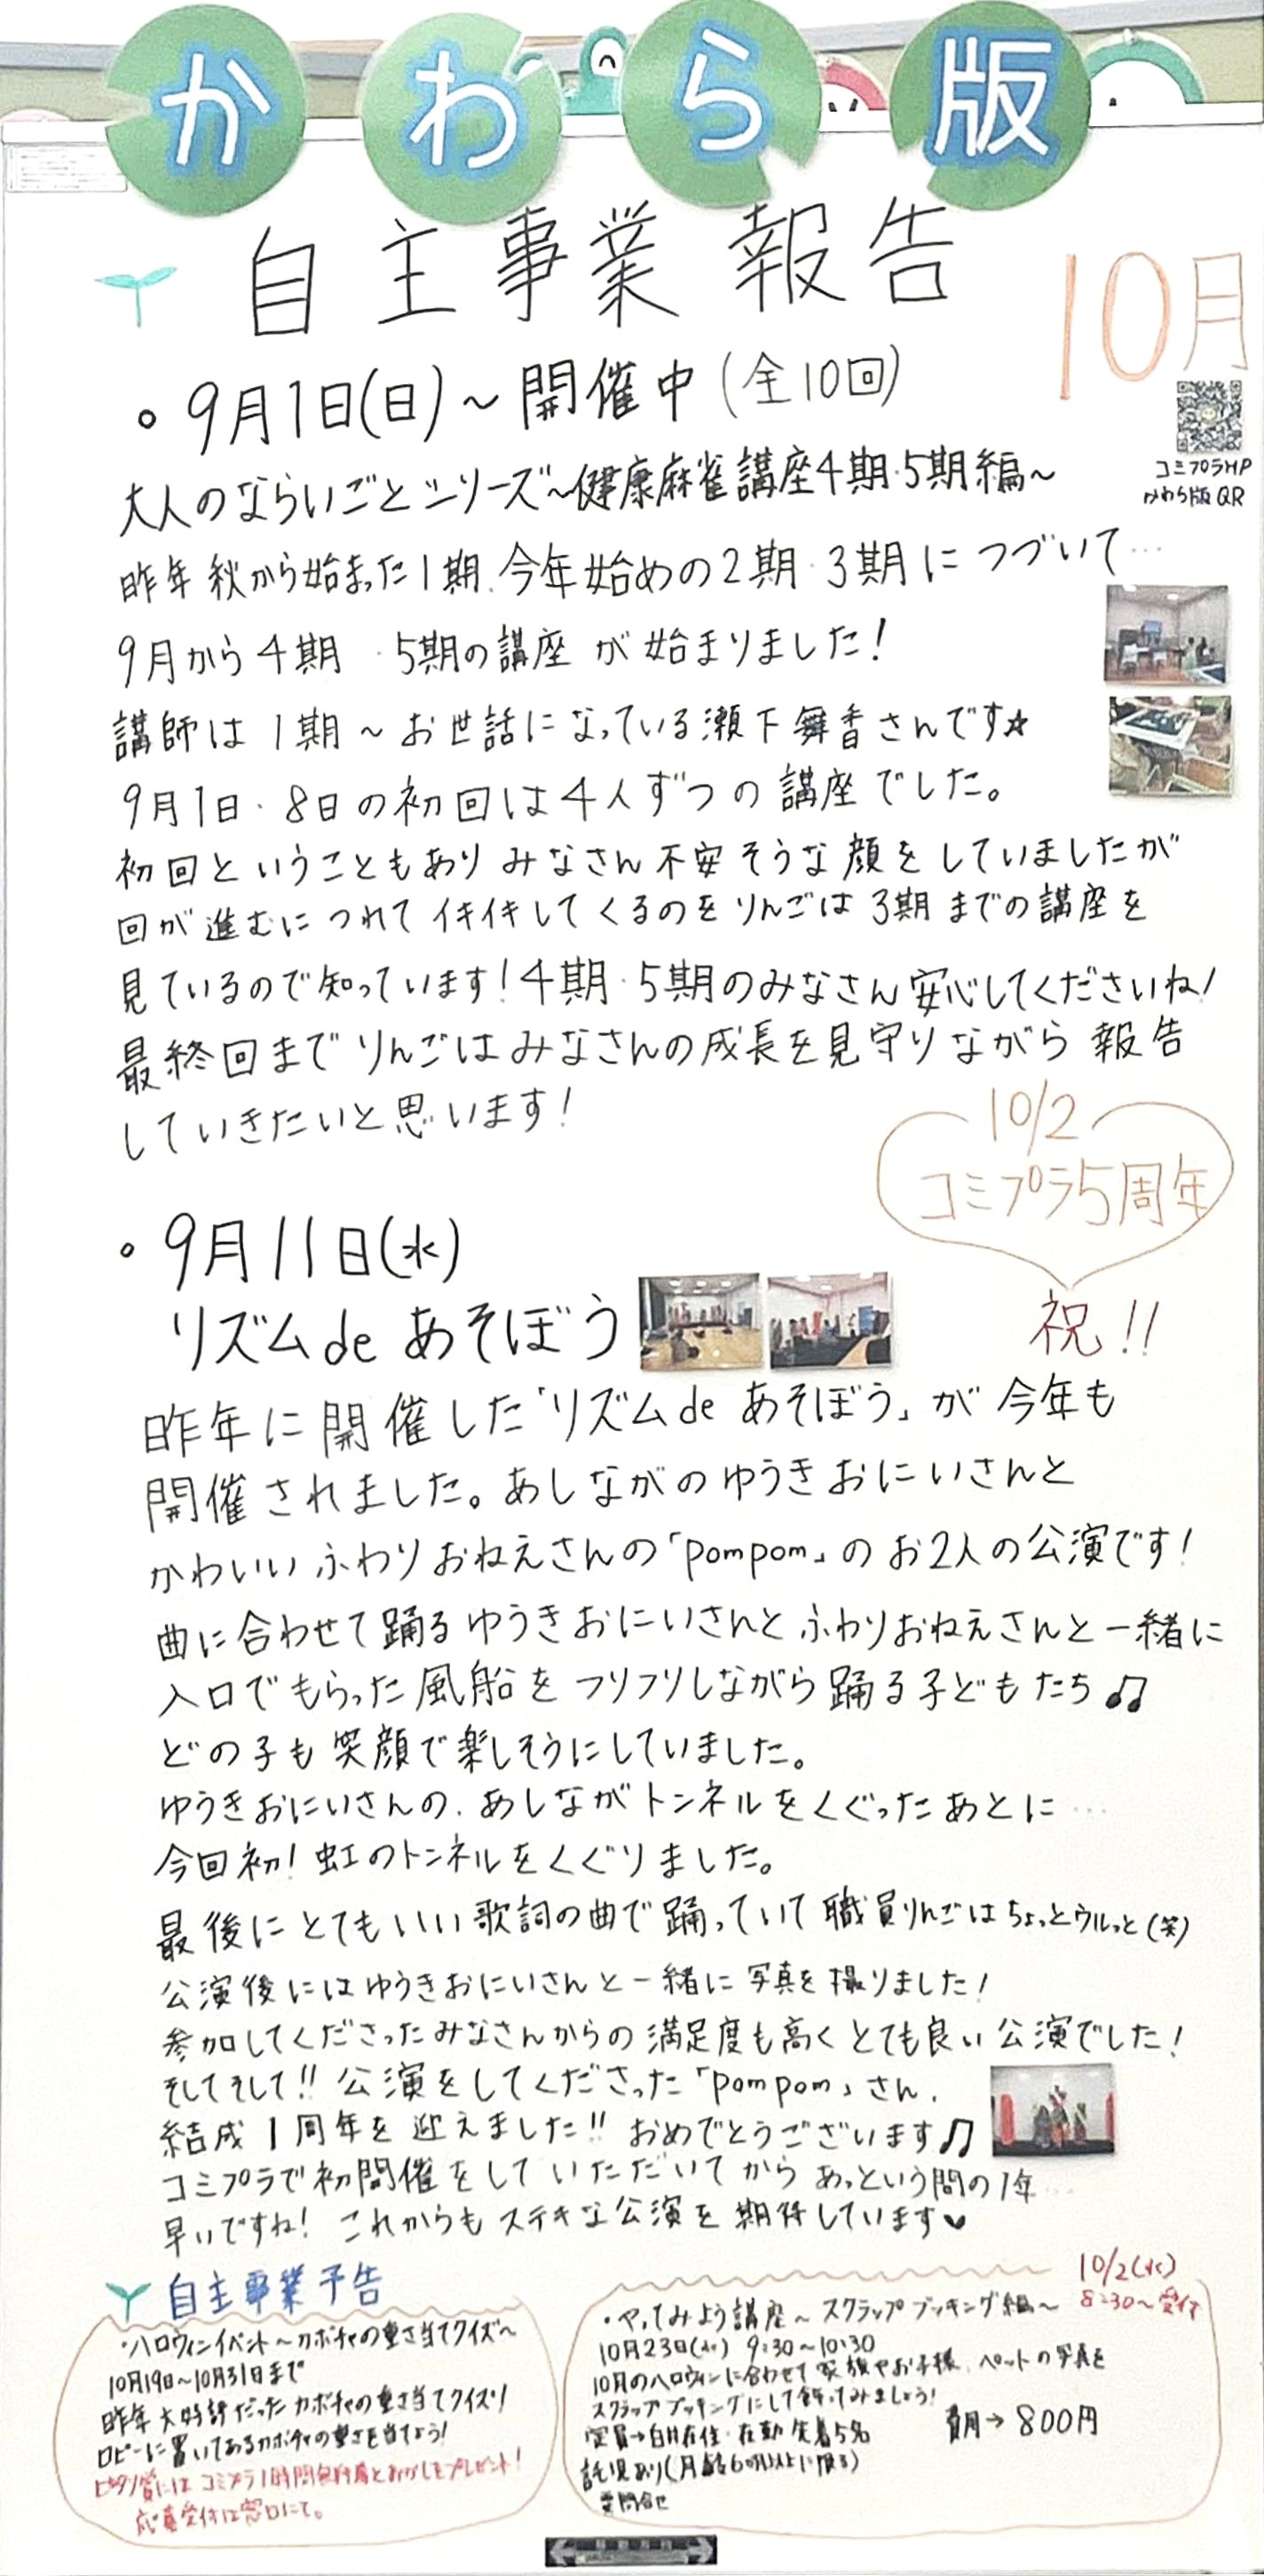 かわら版
自主事業報告
10月
コミプラHP
かわら版QR
・9月1日(日)～開催中(全10回)
大人のならいごとシリーズ～健康麻雀講座4期・5期編～
昨年秋から始まった1期、今年始めの2期・3期につづいて…
9月から4期・5期の講座が始まりました!
講師は1期～お世話になっている瀬下舞香さんです☆
9月1日・8日の初回は4人ずつの講座でした。
初回ということもありみなさん不安そうな顔をしていましたが
回が進むにつれてイキイキしてくるのをりんごは3期までの講座を
見ているので知っています!4期・5期のみなさん安心してくださいね!
最終回までりんごはみなさんの成長を見守りながら報告
していきたいと思います!
10/2
コミプラ5周年
祝!!
・9月11日(水)
リズムdeあそぼう
昨年に開催した「リズムdeあそぼう」が今年も
開催されました。あしながのゆうきおにいさんと
かわいいふわりおねえさんの「pompom」のお2人の公演です!
曲に合わせて踊るゆうきおにいさんとふわりおねえさんと一緒に
入口でもらった風船をフリフリしながら踊る子どもたち♫
どの子も笑顔で楽しそうにしていました。
ゆうきおにいさんの、あしながトンネルをくぐったあとに…
今回初!虹のトンネルをくぐりました。
最後にとてもいい歌詞の曲で踊っていて職員りんごはちょっとウルっと(笑)
公演後にはゆうきおにいさんと一緒に写真を撮りました!
参加してくださったみなさんからの満足度も高くとても良い公演でした!
そしてそして!!公演をしてくださった「pompom」さん、
結成1周年を迎えました!!おめでとうございます♫
コミプラで初開催をしていただいてからあっという間の1年…
早いですね!これからもステキな公演を期待しています♥
自主事業予告
・ハロウィンイベント～カボチャの重さ当てクイズ～
10月19日～10月31日まで
昨年大好評だったカボチャの重さ当てクイズ!
ロビーに置いてあるカボチャの重さを当てよう!
ピタリ賞にはコミプラ1時間無料券とおかしをプレゼント!
応募受付は窓口にて。
10/2(水)
8:30～受付
・やってみよう講座～スクラップブッキング編～
10月23日(水) 9:30～10:30
10月のハロウィンに合わせて家族やお子様、ペットの写真を
スクラップブッキングにして飾ってみましょう!
定員→白井在住・在勤 先着5名
費用→800円
託児あり(月齢6か月以上に限る)
要問合せ